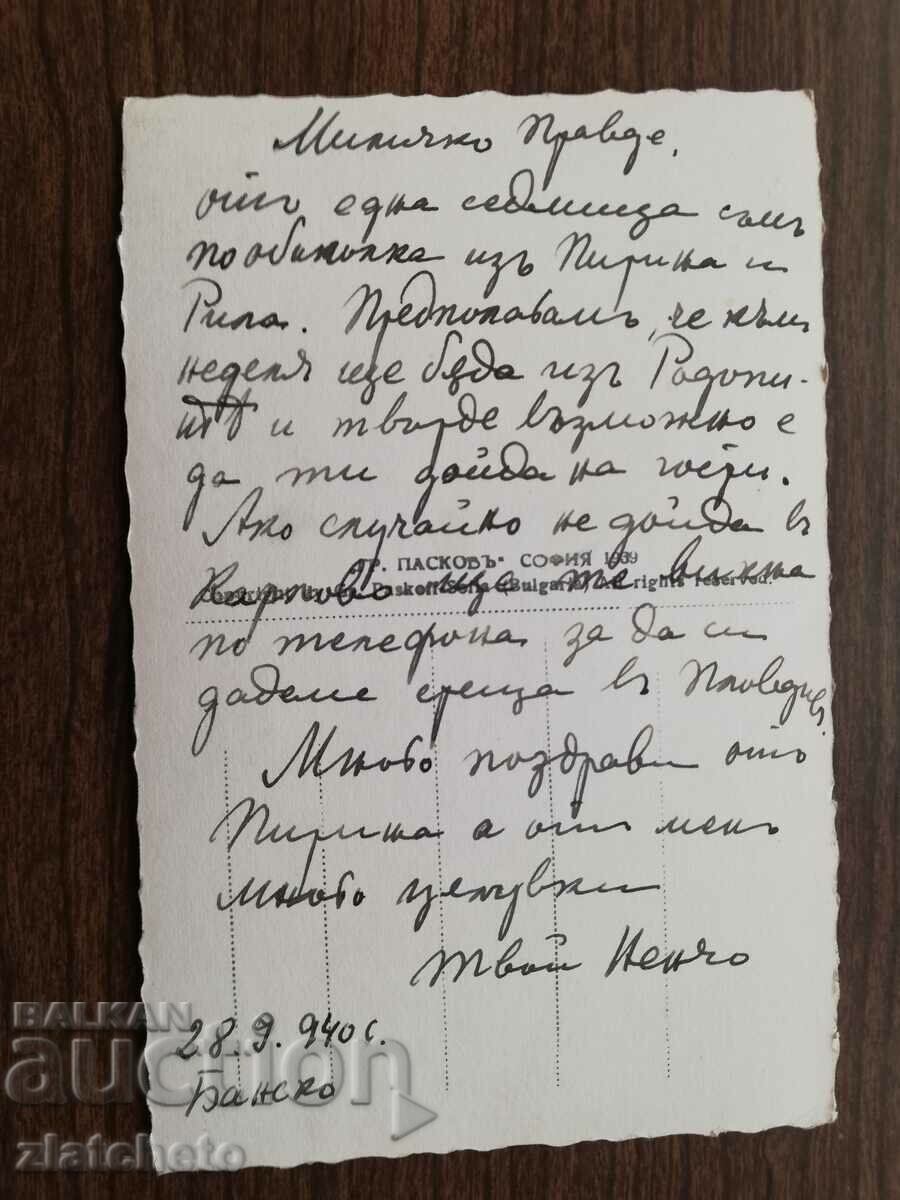 Миличко Правде,
отъ една седмица съмъ
по обиколка изъ Пирина и
Рила. Предполавамъ, че къмъ
неделя ще бѫда изъ Родопи-
тѣ и твърде възможно е
да ти дойда на гости.
Ако случайно не дойда въ
"ГР. ПАСКОВЪ" СОФИЯ 1939
Paskoff Sofia (Bulgarie) All rights reserved.
Карлово ще те викна
по телефона за да си
дадеме среща въ Пловдивъ
Много поздрави отъ
Пирина а отъ менъ
много целувки
твой Ненчо
28.9.940 с.
Банско
BALKAN
auction
zlatcheto